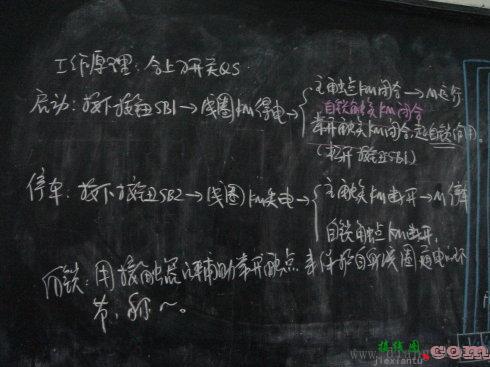 工作原理：合上刀开关QS.
启动：按下按钮SB1→线圈KM得电→
主触点KM闭合→M运行
自锁触头KM闭合
常开触头KM闭合,起自锁作用。
(松开按钮SB1)
停车：按下按钮SB2→线圈KM失电→
主触头KM断开→M停车
自锁触点KM断开.
自锁：用接触器的辅助常开触点来保持自身线圈通电的环
节，称～。
接线图
jiexiantu
com